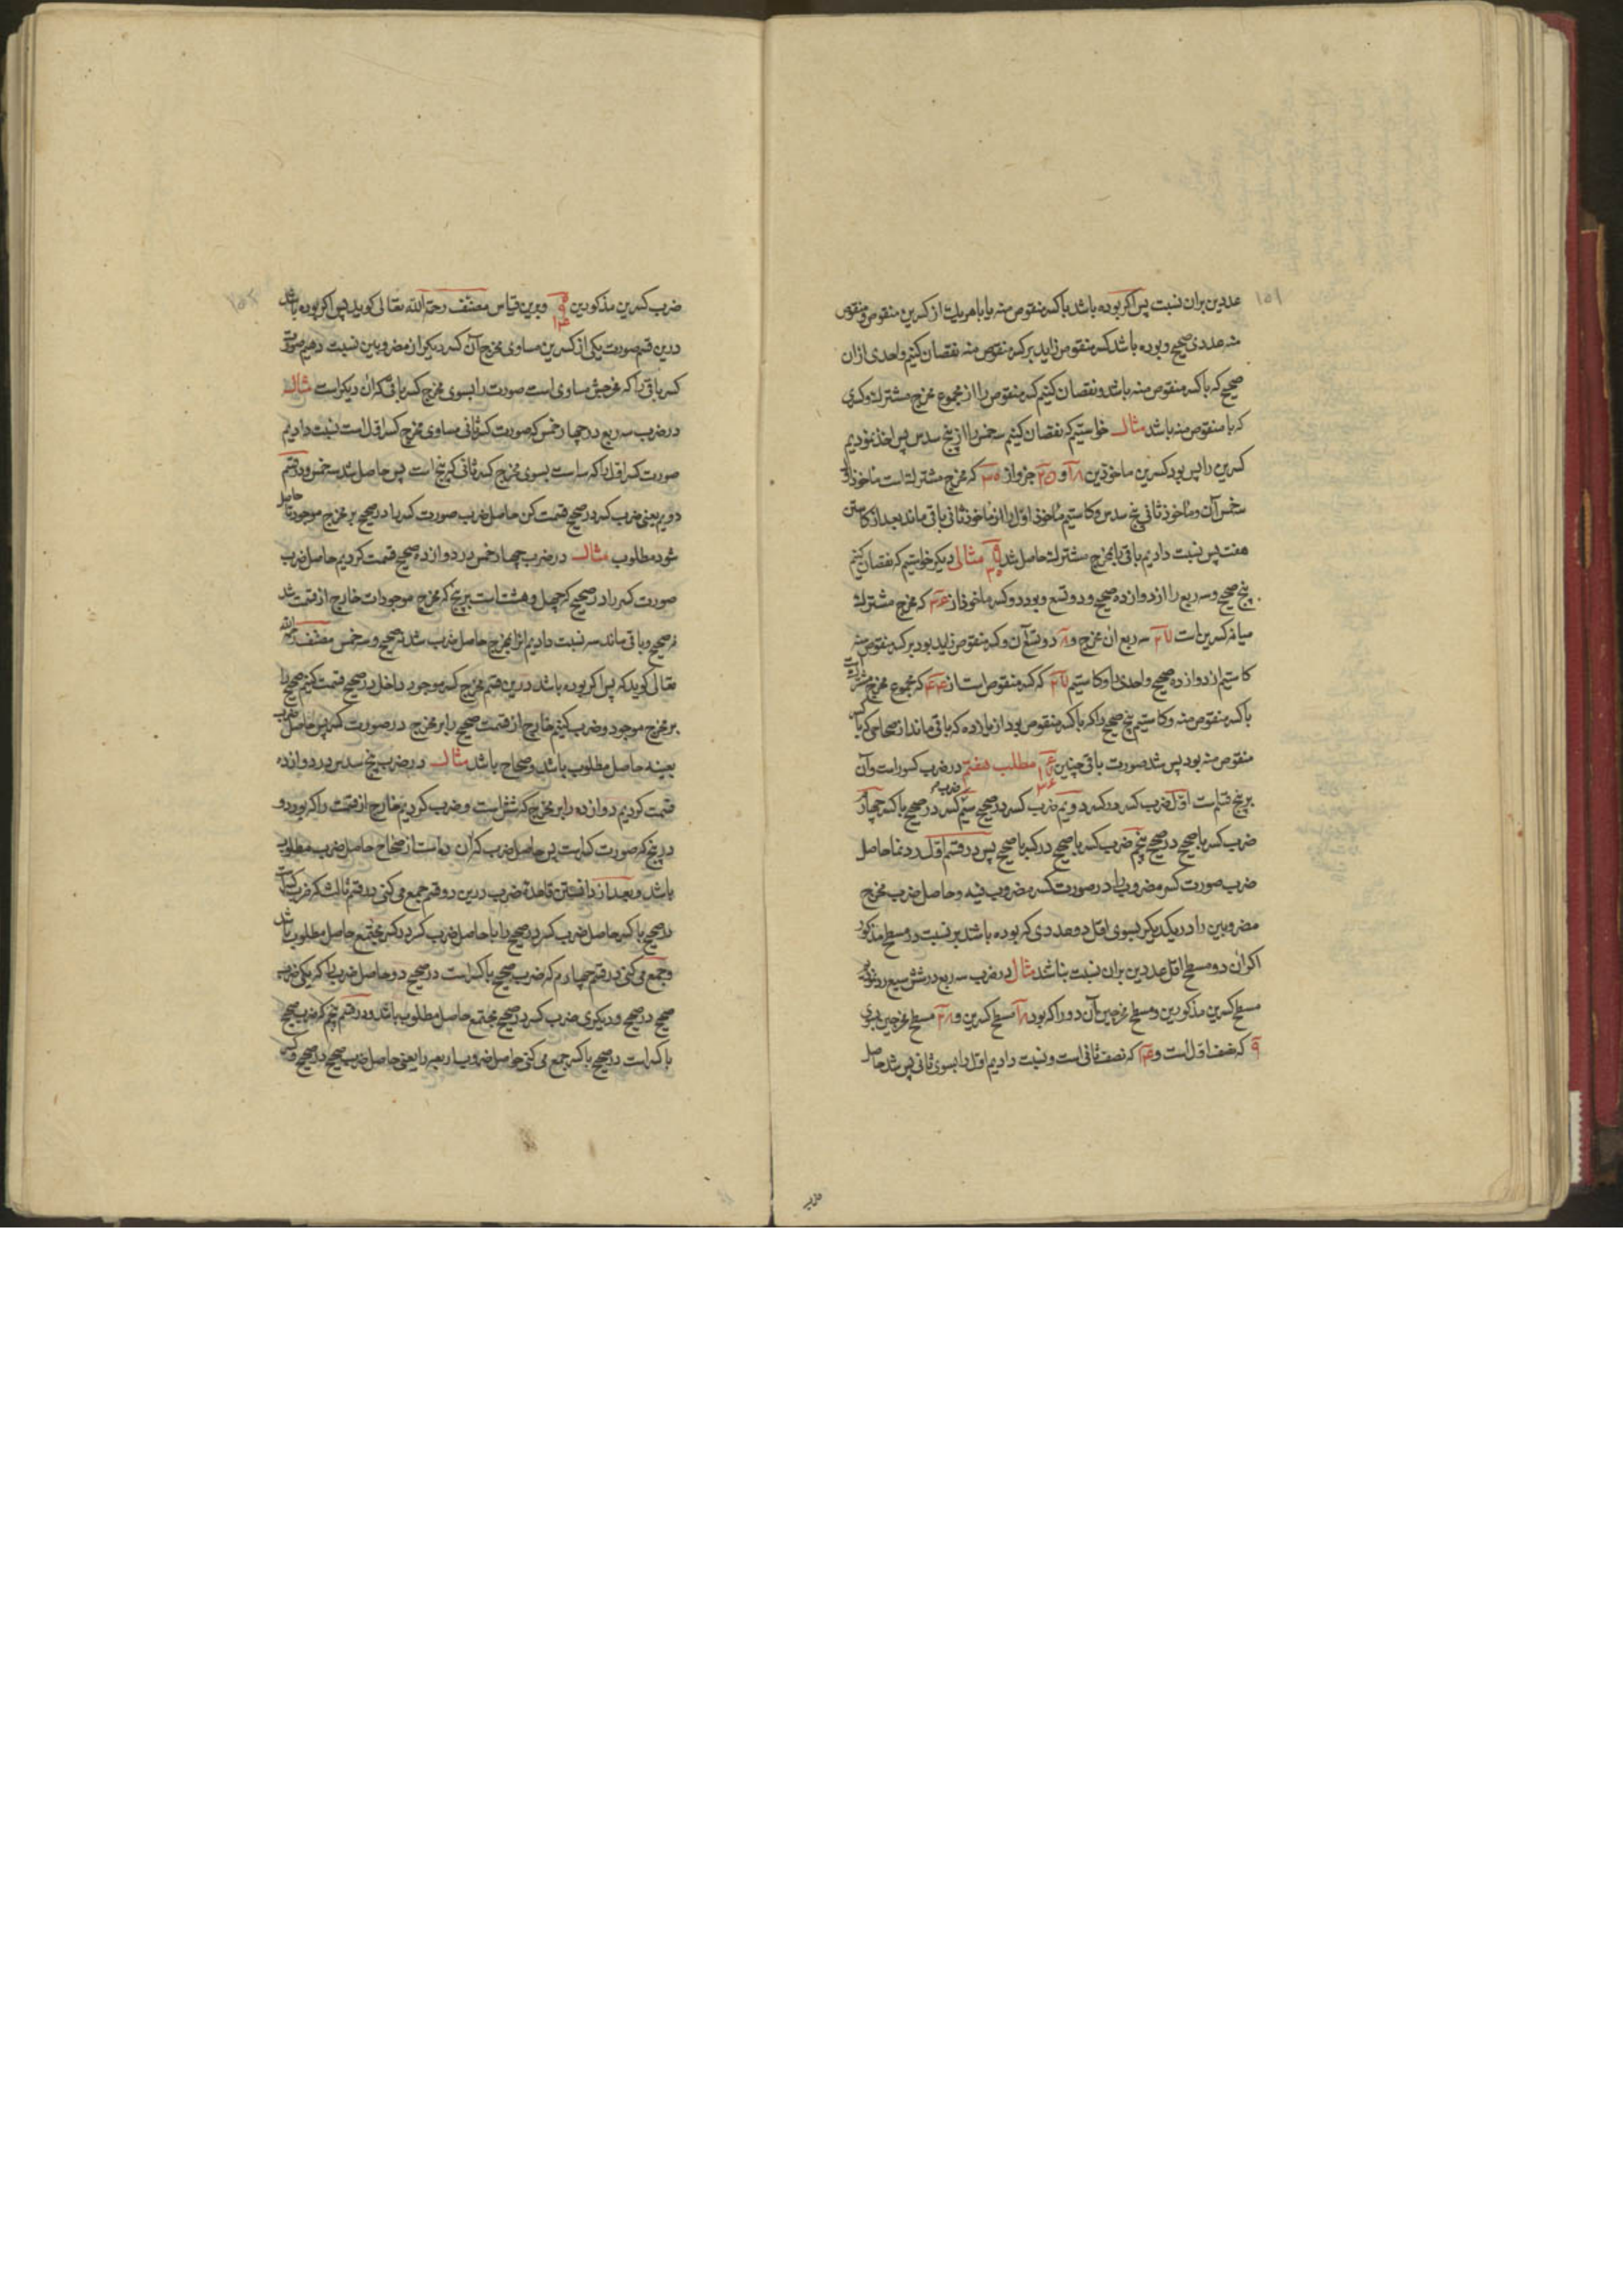 ۱۵۱
عددین بران نسبت پس اکر بوده باشد باکسر منقوص منه یا با هر یک از کسرین منقوص و منقوص
منه عددی صحیح و بوده باشد کسر منقوص زاید بر کسر منقوص منه نقصان کنیم واحدی از ان
صحیح که باکسر منقوص منه باشد و نقصان کنیم کسر منقوص را از مجموع مخرج مشترک و کسری
که با منقوص منه باشد مثال خواستیم که نقصان کنیم سه خمس را از پنج سدس پس اخذ نمودیم
کسرین را پس بود کسرین ماخوذین ۱۸ و ۲۵ جزو از ۳۰ که مخرج مشترک است ماخوذ اول
سه خمس آن و ماخوذ ثانی پنج سدس و کاستیم ماخوذ اول را از ماخوذ ثانی باقی ماند بعد از کاستن
هفت پس نسبت دادیم باقی با مخرج مشترک حاصل شد ۷ ۳۰ مثالی دیکر خواستیم که نقصان کنیم
پنج صحیح و سه ربع را از دوازده صحیح و دو تسع و بود دو کسر ماخوذ از ۳۶ که مخرج مشترک
میانه کسرین است ۲۷ سه ربع ان مخرج و ۸ دو تسع آن و کسر منقوص زاید بود بر کسر منقوص منه
کاستیم از دوازده صحیح واحدی را و کاستیم ۲۷ که کسر منقوص است از ۴۴ که مجموع مخرج مشترک است
باکسر منقوص منه و کاستیم پنج صحیح را که باکسر منقوص بود از یازده که باقی ماند از صحاحی که با کسر
منقوص منه بود پس شد صورت باقی چنین ۶ ۱۷ ۳۶ مطلب هفتم در ضرب کسور است و آن
بر پنج قسم است اول ضرب کسر در کسر دویم ضرب کسر در صحیح سیم ضرب کسر در صحیح باکسر چهارم
ضرب کسر با صحیح در صحیح پنجم ضرب کسر با صحیح در کسر با صحیح پس در قسم اول رد نما حاصل
ضرب صورت کسر مضروب را در صورت کسر مضروب فیه و حاصل ضرب مخرج
مضروبین را در یکدیکر بسوی اقل دو عددی که بوده باشد بر نسبت دو مسطح مذکور
اکر ان دو مسطح اقل عددین بران نسبت نباشد مثال در ضرب سه ربع در شش سبع رد نمودیم
مسطح کسرین مذکورین و مسطح مخرجین آن دو را که بود ۱۸ مسطح کسرین و ۲۸ مسطح مخرجین بسوی
۹ که نصف اول است و ۱۴ که نصف ثانی است و نسبت دادیم اول را بسوی ثانی پس شد حاصل
ضرب
ضرب کسرین مذکورین ۹ ۱۴ و برین قیاس مصنف رحمة الله تعالی کوید پس اکر بوده باشد
درین قسم صورت یکی از کسرین مساوی مخرج آن کسر دیکر از مضروبین نسبت دهیم صورت
کسر باقی را که مخرجش مساوی است صورت را بسوی مخرج کسر باقی که ان دیکر است مثال
در ضرب سه ربع در چهار خمس که صورت کسر ثانی مساوی مخرج کسر اول است نسبت دادیم
صورت کسر اول را که سه است بسوی مخرج کسر ثانی که پنج است پس حاصل شد سه خمس و در قسم
دویم یعنی ضرب کسر در صحیح قسمت کن حاصل ضرب صورت کسر را در صحیح بر مخرج موجود تا حاصل
شود مطلوب مثال در ضرب چهار خمس در دوازده صحیح قسمت کردیم حاصل ضرب
صورت کسر را در صحیح که چهل و هشت است بر پنج که مخرج موجود است خارج از قسمت شد
نه صحیح و باقی ماند سه نسبت دادیم انرا بمخرج حاصل ضرب شد نه صحیح و سه خمس مصنف رحمه الله
تعالی کوید که پس اکر بوده باشد درین قسم مخرج کسر موجود داخل در صحیح قسمت کنیم صحیح را
بر مخرج موجود و ضرب کنیم خارج از قسمت صحیح را بر مخرج در صورت کسر پس حاصل ضرب
بعینه حاصل مطلوب باشد و صحاح باشد مثال در ضرب پنج سدس در دوازده
قسمت کردیم دوازده را بر مخرج که شش است و ضرب کردیم خارج از قسمت را که بود دو
در پنج که صورت کسر است پس حاصل ضرب که ان ده است از صحاح حاصل ضرب مطلوب
باشد و بعد از دانستن قاعده ضرب درین دو قسم جمع می کنی در قسم ثالث که ضرب کسر است
در صحیح باکسر حاصل ضرب کسر در صحیح را با حاصل ضرب کسر در کسر مجتمع حاصل مطلوب باشد
و جمع می کنی در قسم چهارم که ضرب صحیح باکسر است در صحیح دو حاصل ضرب را که یکی ضرب
صحیح در صحیح و دیکری ضرب کسر در صحیح مجتمع حاصل مطلوب باشد و در قسم پنجم که ضرب صحیح
باکسر است در صحیح باکسر جمع می کنی حاصل ضروب اربعه را یعنی حاصل ضرب صحیح در صحیح و کسر